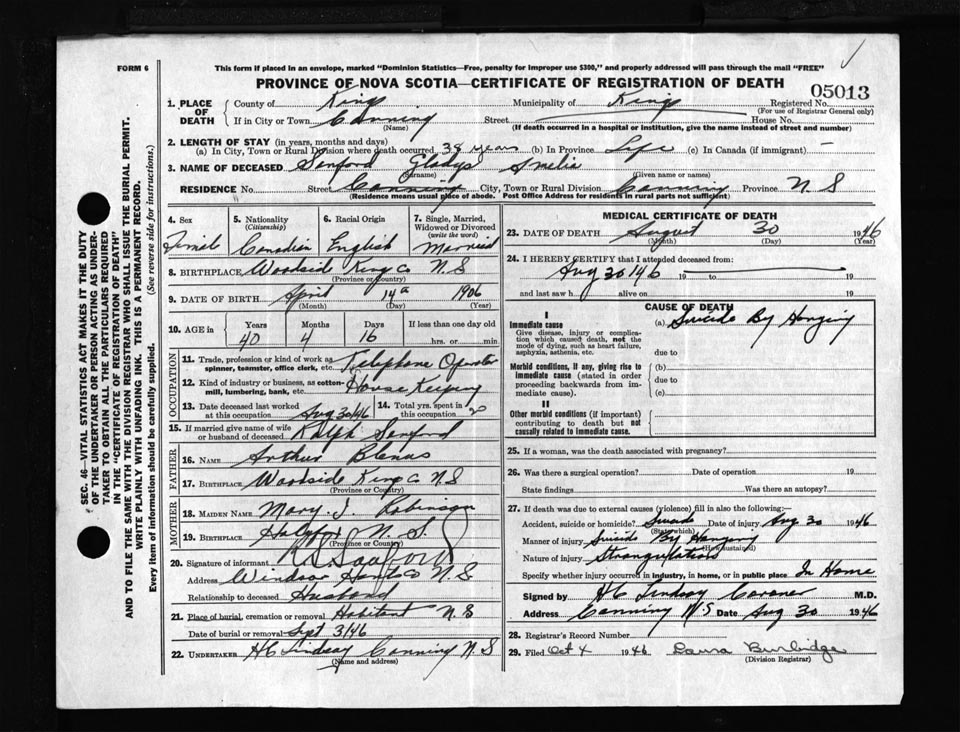 FORM 6
This form if placed in an envelope, marked "Dominion Statistics—Free, penalty for improper use $300," and properly addressed will pass through the mail "FREE"
PROVINCE OF NOVA SCOTIA—CERTIFICATE OF REGISTRATION OF DEATH
05013
1. PLACE OF DEATH { County of Kings Municipality of Kings Registered No.
(For use of Registrar General only)
If in City or Town Canning Street House No.
(Name) (If death occurred in a hospital or institution, give the name instead of street and number)
2. LENGTH OF STAY (in years, months and days)
(a) In City, Town or Rural Division where death occurred 38 years (b) In Province Life (c) In Canada (if immigrant) —
3. NAME OF DECEASED Sanford Gladys Amelia
(Surname) (Given name or names)
RESIDENCE No. Street Canning City, Town or Rural Division Canning Province N S
(Residence means usual place of abode. Post Office Address for residents in rural parts not sufficient)
4. Sex 5. Nationality 6. Racial Origin 7. Single, Married,
(Citizenship) Widowed or Divorced
(write the word)
Female Canadian English Married
8. BIRTHPLACE Woodside Kings Co N.S
(Province or Country)
9. DATE OF BIRTH April 14 1906
(Month) (Day) (Year)
10. AGE in { Years Months Days If less than one day old
40 4 16 hrs. or min.
OCCUPATION
11. Trade, profession or kind of work as
spinner, teamster, office clerk, etc. Telephone Operator
12. Kind of industry or business, as cotton-
mill, lumbering, bank, etc. House Keeping
13. Date deceased last worked 14. Total yrs. spent in
at this occupation Aug 30/46 this occupation
15. If married give name of wife
or husband of deceased Ralph Sanford
FATHER
16. NAME Arthur Blenus
17. BIRTHPLACE Woodside Kings Co N S
(Province or Country)
MOTHER
18. MAIDEN NAME Mary J. Robinson
19. BIRTHPLACE N. S.
(Province or Country)
20. Signature of informant
Address Windsor Hants Co N S
Relationship to deceased Husband
21. Place of burial, cremation or removal Habitant N. S
Date of burial or removal Sept 3/46
22. UNDERTAKER H C Lindsay Canning N S
(Name and address)
MEDICAL CERTIFICATE OF DEATH
23. DATE OF DEATH August 30 1946
(Month) (Day) (Year)
24. I HEREBY CERTIFY that I attended deceased from:
Aug 30/46 19 to 19
and last saw h alive on 19
CAUSE OF DEATH
I
Immediate cause (a) Suicide By Hanging
Give disease, injury or complica-
tion which caused death, not the
mode of dying, such as heart failure,
asphyxia, asthenia, etc. due to
Morbid conditions, if any, giving rise to (b)
immediate cause (stated in order due to
proceeding backwards from im-
mediate cause). (c)
II
Other morbid conditions (if important)
contributing to death but not
causally related to immediate cause.
25. If a woman, was the death associated with pregnancy?
26. Was there a surgical operation? Date of operation 19
State findings Was there an autopsy?
27. If death was due to external causes (violence) fill in also the following:—
Accident, suicide or homicide? Suicide Date of injury Aug 30 1946
(State which)
Manner of injury Suicide By Hanging
(How sustained)
Nature of injury Strangulation
Specify whether injury occurred in industry, in home, or in public place In Home
Signed by H C Lindsay Coroner M.D.
Address Canning N. S Date Aug 30 1946
28. Registrar's Record Number
29. Filed Oct 4 1946 Laura Burbidge
(Division Registrar)
SEC. 46—VITAL STATISTICS ACT MAKES IT THE DUTY
OF THE UNDERTAKER OR PERSON ACTING AS UNDER-
TAKER TO OBTAIN ALL THE PARTICULARS REQUIRED
IN THE "CERTIFICATE OF REGISTRATION OF DEATH"
AND TO FILE THE SAME WITH THE DIVISION REGISTRAR WHO SHALL ISSUE THE BURIAL PERMIT.
WRITE PLAINLY WITH UNFADING INK. THIS IS A PERMANENT RECORD.
Every item of information should be carefully supplied. (See reverse side for instructions.)